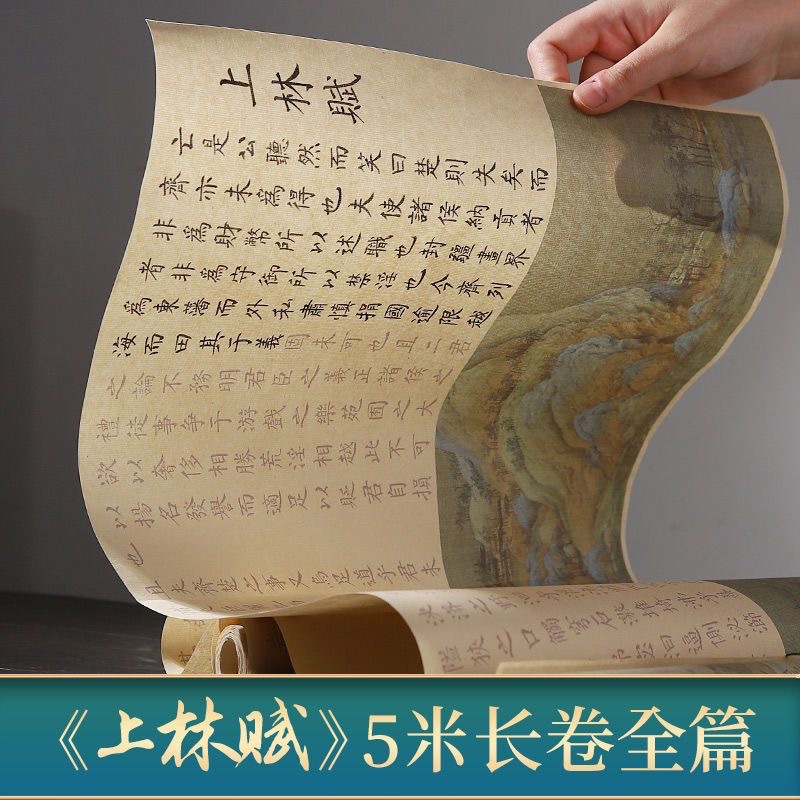 上林賦
亡是公聽然而笑曰楚則失矣而
齊亦未為得也夫使諸侯納貢者
非為財幣所以述職也封疆畫界
者非為守御所以禁淫也今齊列
為東藩而外私肅慎捐國逾限越
海而田其于義固未可也且二君
之論不務明君臣之義正諸侯之
禮徒事爭于游戲之樂苑囿之大
欲以奢侈相勝荒淫相越此不可
以揚名發譽而適足以貶君自損
也
且夫齊楚之事又烏足道乎君未
隘狹之口觸穹石激堆埼沸
逼側泌瀄
《上林赋》5米长卷全篇